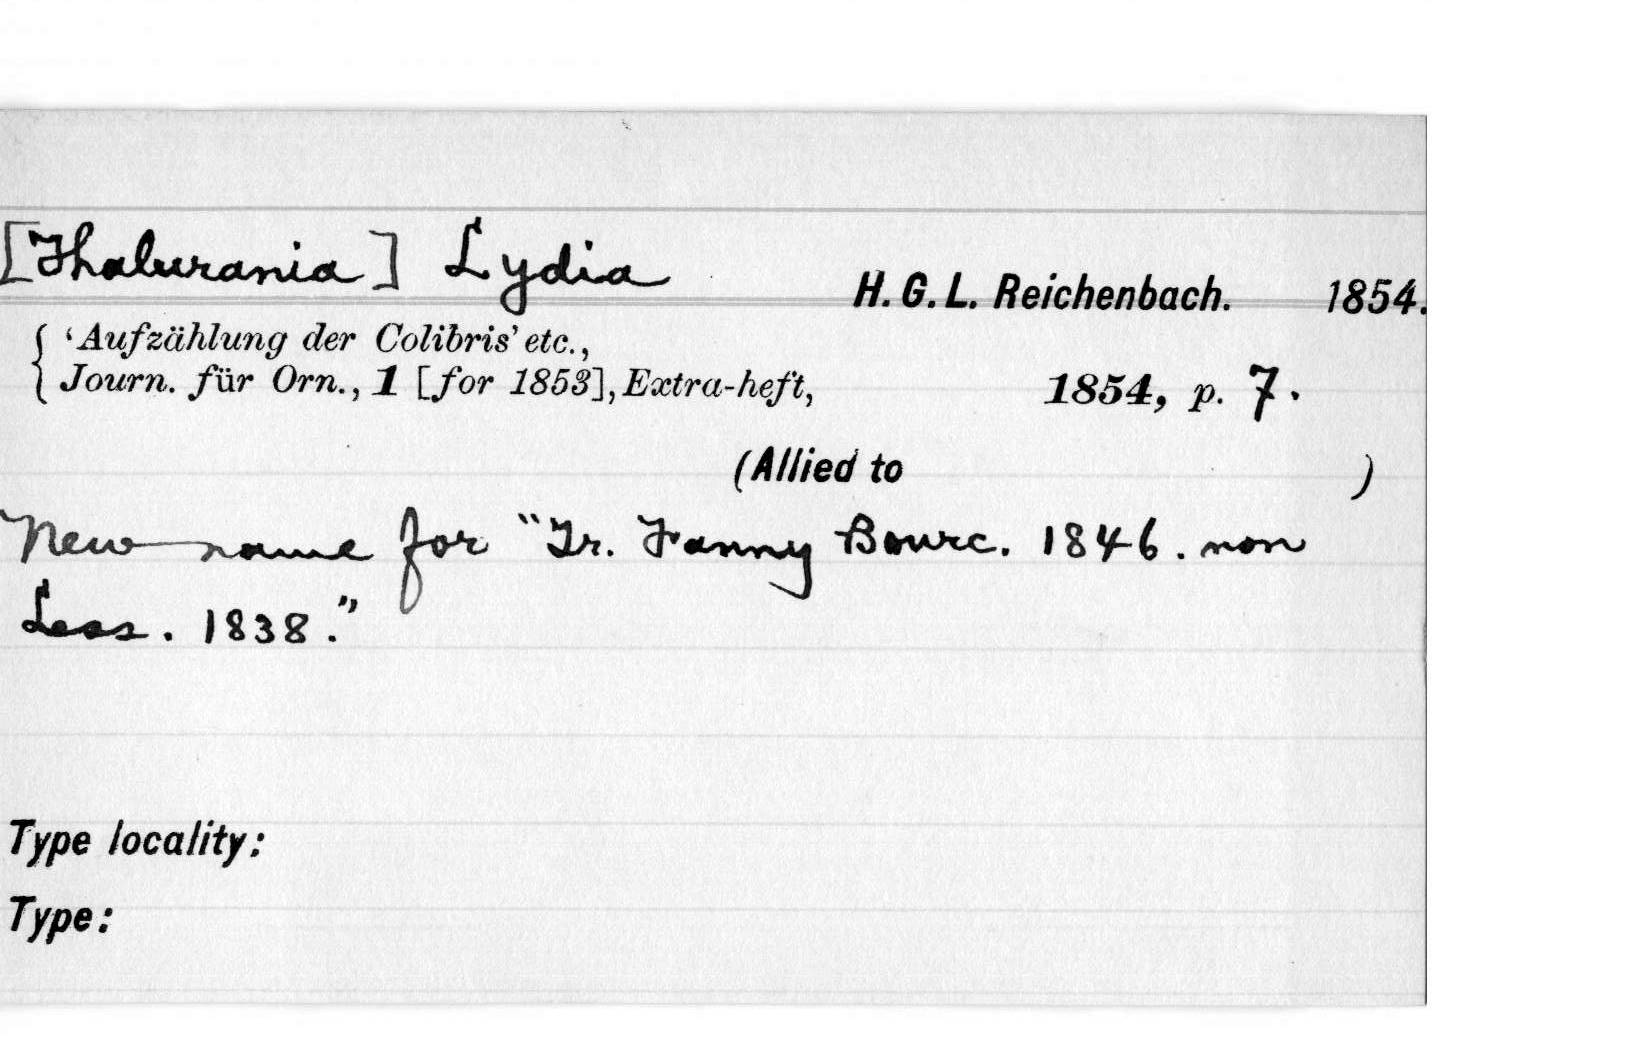 [Thalurania] Lydia H. G. L. Reichenbach. 1854.
'Aufzählung der Colibris' etc.,
Journ. für Orn., 1 [for 1853], Extra-heft, 1854, p. 7.
(Allied to )
New name for "Tr. Fanny Bourc. 1846. non
Less. 1838."
Type locality:
Type: